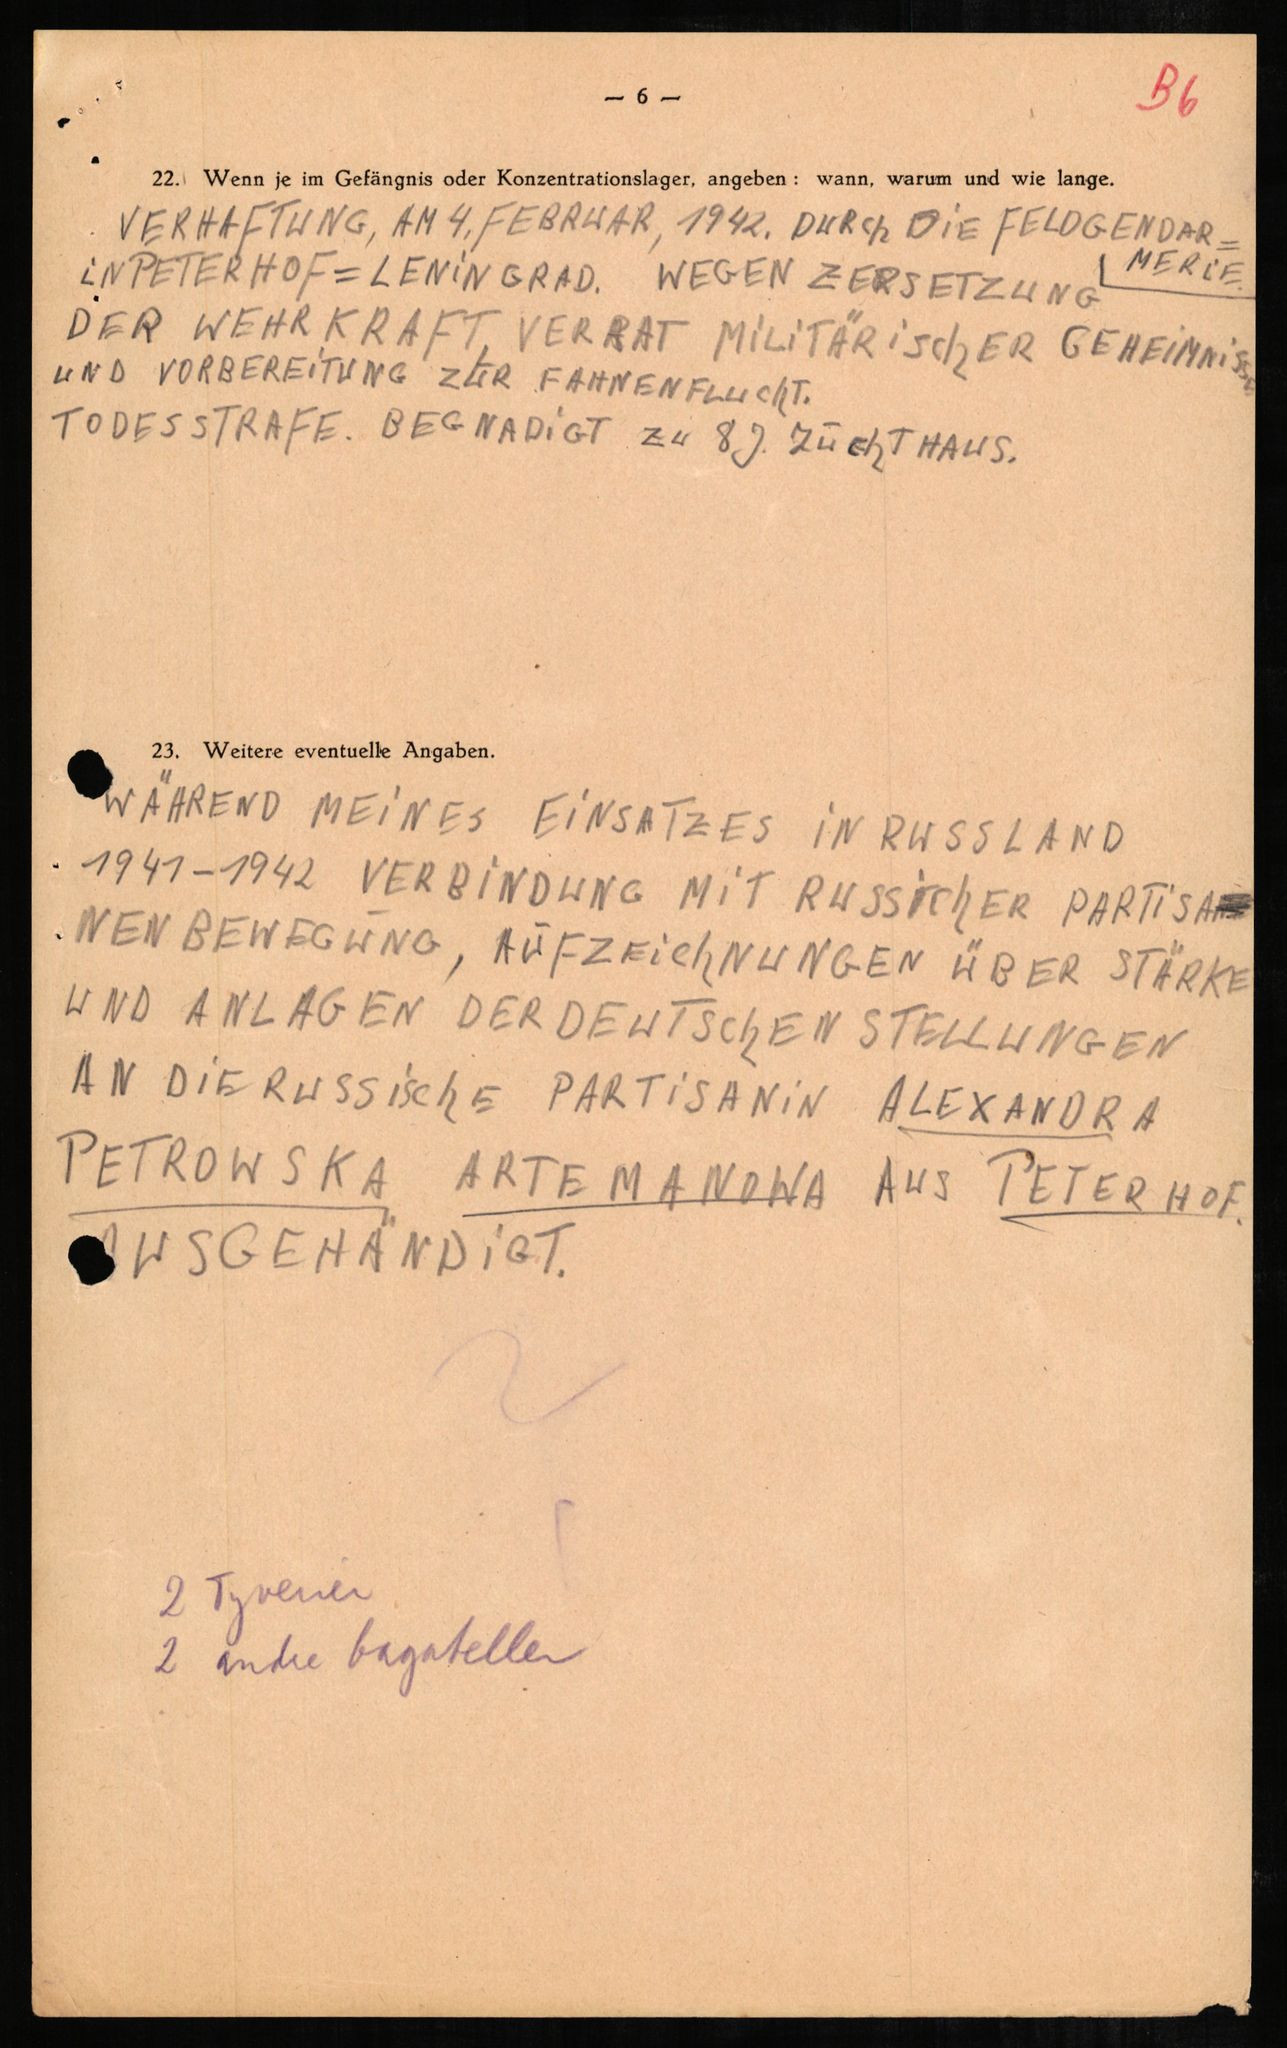 — 6 —
B6
22. Wenn je im Gefängnis oder Konzentrationslager, angeben: wann, warum und wie lange.
VERHAFTUNG, AM 4. FEBRUAR, 1942. DURCH DIE FELDGENDAR=
MERIE.
IN PETERHOF = LENINGRAD. WEGEN ZERSETZUNG
DER WEHRKRAFT, VERRAT MILITÄRISCHER GEHEIMNISSE
UND VORBEREITUNG ZUR FAHNENFLUCHT.
TODESSTRAFE. BEGNADIGT ZU 8 J. ZUCHTHAUS.
23. Weitere eventuelle Angaben.
WÄHREND MEINES EINSATZES IN RUSSLAND
1941–1942 VERBINDUNG MIT RUSSISCHER PARTISA
NENBEWEGUNG, AUFZEICHNUNGEN ÜBER STÄRKE
UND ANLAGEN DER DEUTSCHEN STELLUNGEN
AN DIE RUSSISCHE PARTISANIN ALEXANDRA
PETROWSKA ARTEMANOWA AUS PETERHOF.
AUSGEHÄNDIGT.
2 Tyverier
2 andre bagateller